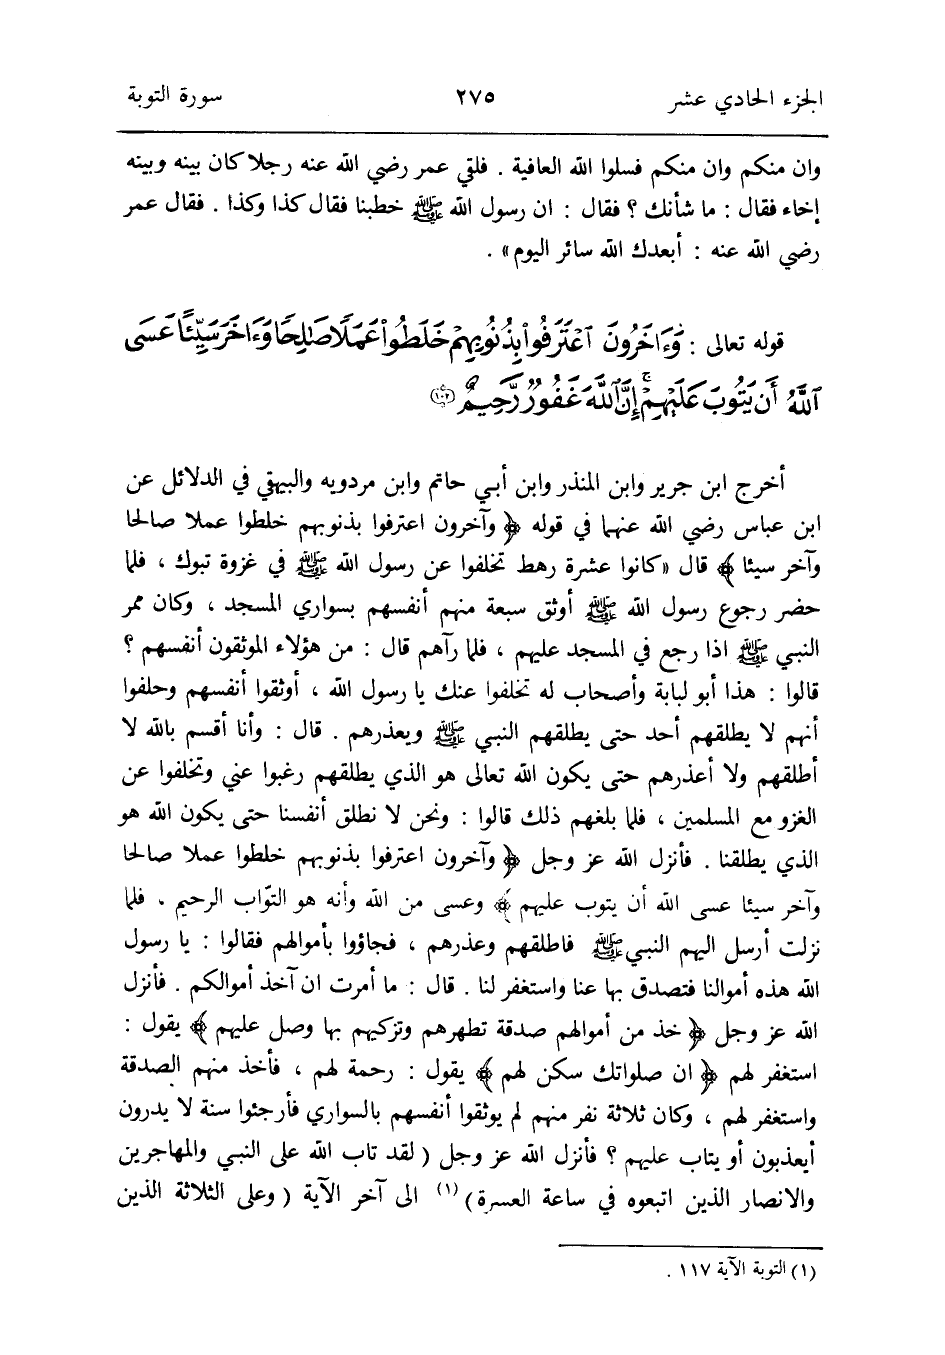 الجزء الحادي عشر ٢٧٥ سورة التوبة
وان منكم وان منكم فسلوا الله العافية . فلقي عمر رضي الله عنه رجلا كان بينه وبينه
إخاء فقال : ما شأنك ؟ فقال : ان رسول الله ﷺ خطبنا فقال كذا وكذا . فقال عمر
رضي الله عنه : أبعدك الله سائر اليوم» .
قوله تعالى : وَءَاخَرُونَ ٱعْتَرَفُوا۟ بِذُنُوبِهِمْ خَلَطُوا۟ عَمَلًا صَٰلِحًا وَءَاخَرَ سَيِّئًا عَسَى
ٱللَّهُ أَن يَتُوبَ عَلَيْهِمْ ۚ إِنَّ ٱللَّهَ غَفُورٌ رَّحِيمٌ ١٠٢
أخرج ابن جرير وابن المنذر وابن أبي حاتم وابن مردويه والبيهقي في الدلائل عن
ابن عباس رضي الله عنهما في قوله ﴿ وآخرون اعترفوا بذنوبهم خلطوا عملا صالحا
وآخر سيئا ﴾ قال «كانوا عشرة رهط تخلفوا عن رسول الله ﷺ في غزوة تبوك ، فلما
حضر رجوع رسول الله ﷺ أوثق سبعة منهم أنفسهم بسواري المسجد ، وكان ممر
النبي ﷺ اذا رجع في المسجد عليهم ، فلما رآهم قال : من هؤلاء الموثقون أنفسهم ؟
قالوا : هذا أبو لبابة وأصحاب له تخلفوا عنك يا رسول الله ، أوثقوا أنفسهم وحلفوا
أنهم لا يطلقهم أحد حتى يطلقهم النبي ﷺ ويعذرهم . قال : وأنا أقسم بالله لا
أطلقهم ولا أعذرهم حتى يكون الله تعالى هو الذي يطلقهم رغبوا عني وتخلفوا عن
الغزو مع المسلمين ، فلما بلغهم ذلك قالوا : ونحن لا نطلق أنفسنا حتى يكون الله هو
الذي يطلقنا . فأنزل الله عز وجل ﴿ وآخرون اعترفوا بذنوبهم خلطوا عملا صالحا
وآخر سيئا عسى الله أن يتوب عليهم ﴾ وعسى من الله وأنه هو التوّاب الرحيم . فلما
نزلت أرسل اليهم النبي ﷺ فاطلقهم وعذرهم ، فجاؤوا بأموالهم فقالوا : يا رسول
الله هذه أموالنا فتصدق بها عنا واستغفر لنا . قال : ما أمرت ان آخذ أموالكم . فأنزل
الله عز وجل ﴿ خذ من أموالهم صدقة تطهرهم وتزكيهم بها وصل عليهم ﴾ يقول :
استغفر لهم ﴿ ان صلواتك سكن لهم ﴾ يقول : رحمة لهم ، فأخذ منهم الصدقة
واستغفر لهم ، وكان ثلاثة نفر منهم لم يوثقوا أنفسهم بالسواري فأرجئوا سنة لا يدرون
أيعذبون أو يتاب عليهم ؟ فأنزل الله عز وجل ( لقد تاب الله على النبي والمهاجرين
والانصار الذين اتبعوه في ساعة العسرة) (١) الى آخر الآية ( وعلى الثلاثة الذين
(١) التوبة الآية ١١٧ .